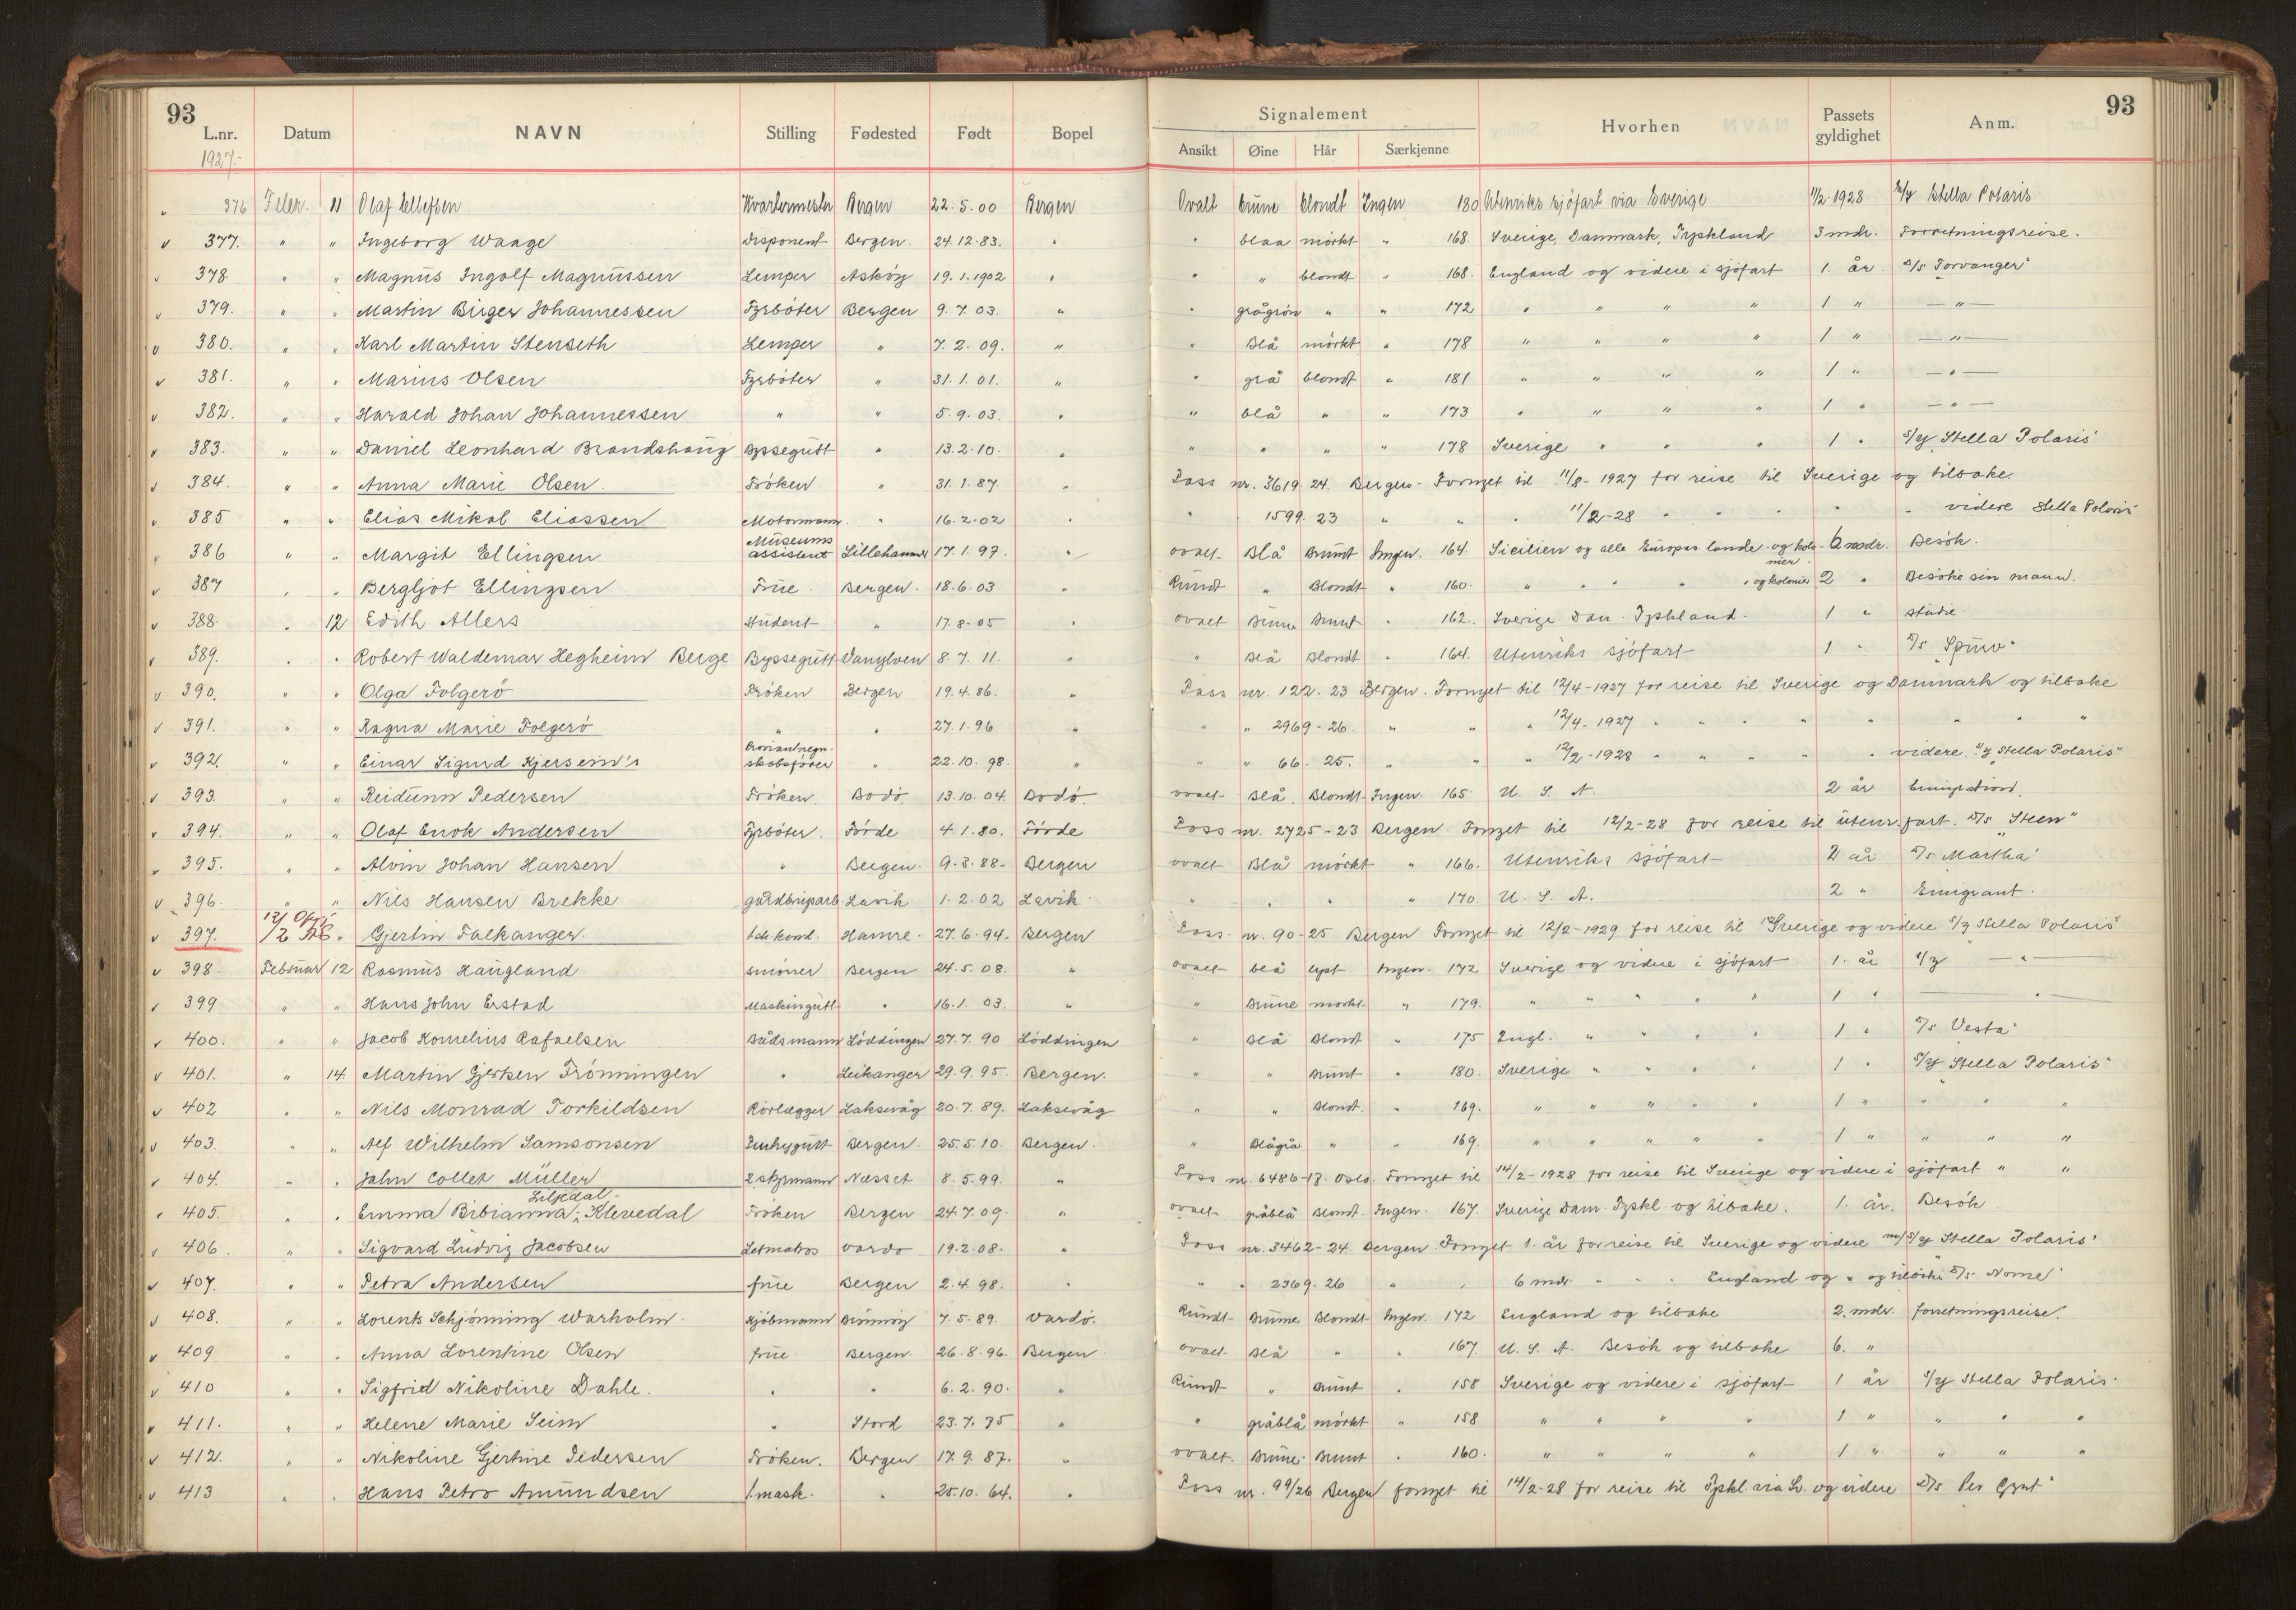 93 93
L.nr. Datum NAVN Stilling Fødested Født Bopel Signalement Hvorhen Passets gyldighet Anm.
Ansikt Øine Hår Særkjenne
1927.-
" 376 Febr. 11 Olaf Ellefsen Kvartermester Bergen 22.5.00 Bergen Ovalt brune blondt Ingen 180 Utenriks sjøfart via Sverige 11/2-1928 S/y Stella Polaris
v 377. " " Ingeborg Waage Disponent Bergen. 24.12.83. " " blaa mörkt " 168. Sverige, Danmark, Tyskland 3 mdr. Forretningsreise.
v 378 " " Magnus Ingolf Magnussen Lemper Asköy 19.1.1902 " " " blondt " 168. England og videre i sjöfart 1. år. D/s "Torvanger"
v 379. " " Martin Birger Johannessen Fyrböter Bergen 9.7.03. " " grågrön " " 172 " " " " 1 " — " —
v 380. " " Karl Martin Stenseth Lemper " 7.2.09. " " Blå mörkt " 178 " " " " 1 " — " —
v 381. " " Marius Olsen Fyrböter " 31.1.01. " " grå blondt " 181 " " " " 1 " — " —
v 382. " " Harald Johan Johannessen " " 5.9.03. " " blå " " 173 " " " " 1 " — " —
v 383. " " Daniel Leonhard Brandshaug Byssegutt " 13.2.10. " " " " " 178 Sverige " " " 1 " S/y "Stella Polaris"
v 384. " " Anna Marie Olsen. Fröken " 31.1.87. " Pass nr. 3619. 24. Bergen - Fornyet til 11/8-1927 for reise til Sverige og tilbake.
v 385 " " Elias Mikal Eliassen Motormann. " 16.2.02 " " 1599. 23 " " " 11/2-28 " " " " videre Stella Polaris
v 386 " " Margit Ellingsen Museums assistent Lillehammer 17.1.97. " ovalt Blå Brundt Ingen. 164. Sicilien og alle Europas lande og kolonier. 6 mndr. Besök.
v 387 " " Bergljot Ellingsen Frue. Bergen. 18.6.03 " Rundt " Blondt " 160. " " " " " og kolonier 2 " Besöke sin mann.
v 388. " 12 Edith Allers Student " 17.8-05 " ovalt Brune Brunt " 162. Sverige Dan. Tyskland. 1 " studie
v 389. " " Robert Waldemar Hegheim Berge Byssegutt Vanylven 8.7.11. " " Blå Blondt " 164. Utenriks sjöfart 1 " D/s
v 390. " " Olga Folgerö Fröken Bergen 19.4.86. " Pass nr. 122. 23 Bergen. Fornyet til 12/4-1927 for reise til Sverige og Danmark og tilbake
v 391. " " Ragna Marie Folgerö " " 27.1.96 " " " 2969-26. " " " 12/4-1927 " " " " " " "
v 392. " " Einar Sigurd Kjersem's Proviantregnskabsförer " 22.10.98. " " " 66. 25. " " " 12/2-1928 " " " " videre. S/y "Stella Polaris"
v 393. " " Reidunn Pedersen Fröken. Bodö. 13.10.04. Bodö. ovalt Blå. Blondt Ingen. 165. U. S. A. 2 år Emigration.
v 394. " " Olaf Enok Andersen Fyrböter. Förde 4.1.80. Förde Pass nr. 2725-23 Bergen. Fornyet til 12/2-28 for reise til utenr. fart. D/s "Steen"
v 395. " " Alvin Johan Hansen " Bergen. 9.8.88- Bergen ovalt Blå mörkt " 166. Utenriks sjöfart 2 år D/s "Martha"
v 396. " " Nils Hansen Brekke Lavik 1.2.02 Lavik " " " " 170. U. S. A. 2 " Emigrant.
v 397. 12/2 " Gjertin Falkanger. Hamre. 27.6.94. Bergen Pass nr. 90-25 Bergen Fornyet til 12/2-1929 for reise til Sverige og videre S/y Stella Polaris"
v 398. Februar 12 Rasmus Haugland smörer Bergen 24.5.08. " ovalt blå lyst Ingen. 172 Sverige og videre i sjöfart 1. år S/y — " —
v 399 " " Hans John Erstad Maskingutt " 16.1.03. " " Brune mörkt " 179. " " " " " 1 " — " —
v 400. " " Jacob Kornelius Rafaelsen Bådsmann Löddingen 27.7.90 Löddingen " Blå Blondt " 175 Engl. " " " " 1 " D/s "Vesta"
v 401. " 14. Martin Gjertsen Frönningen " Leikanger 29.9.95. Bergen. " " Brunt " 180. Sverige " " " " 1 " S/y "Stella Polaris"
v 402 " " Nils Monrad Torkildsen Rörlægger Laksevåg 20.7.89. Laksevåg " " Blondt. " 169. " " " " " 1 " " " "
v 403. " " Alf Wilhelm Samsonsen Bergen. 25.5.10. Bergen. " Blågrå " " 169. " " " " " 1 " " " "
v 404. " " Jahn Collet Müller 2. styrmann Næsset 8.5.99. " Pass nr. 6486-18. Oslo. Fornyet til 14/2-1928 for reise til Sverige og videre i sjöfart " "
Liljedal-
v 405. " " Emma Bibianna Klevedal Fröken Bergen 24.7.09. " ovalt gråblå Blondt. Ingen. 167. Sverige Dam. Tyskl. og tilbake. 1. år. Besök
v 406. " " Sigvard Ludvig Jacobsen Letmatros Vardö 19.2.08. " Pass nr. 3462-24. Bergen. Fornyet 1. år for reise til Sverige og videre m/S/y Stella Polaris"
v 407. " " Petra Andersen frue Bergen 2.4.98. " " " 2369. 26 " " 6 mdr. " " " England og " og tilbake D/s "Nome"
v 408. " " Lorents Schjönning Warholm. Kjöbmann Brönnöy 7.5.89. Vardö. Rundt Brune Blondt Ingen. 172 England og tilbake 2. mdr. forretningsreise.
v 409 " " Anna Lorentine Olsen frue. Bergen. 26.8.96. Bergen ovalt Blå " " 167. U. S. A. Besök og tilbake 6. "
v 410 " " Sigfrid Nikoline Dahle. " " 6.2.90. " Rundt " Brunt " 158 Sverige og videre i sjöfart 1 år S/y Stella Polaris.
v 411. " " Helene Marie Seim " Stord 23.7. " " gråblå mörkt " 158 " " " " 1 " " " "
v 412. " " Nikoline Gjertine Pedersen Fröken. Bergen 17.9.87. " ovalt. Brune. Brunt " 160. " " " " 1 " " " "
v 413 " " Hans Petro Amundsen 1. mask. " 25.10.64. " Pass nr. 99/26 Bergen fornyet til 14/2-28 for reise til Tyskl. via Sv. og videre D/s Per Gynt"